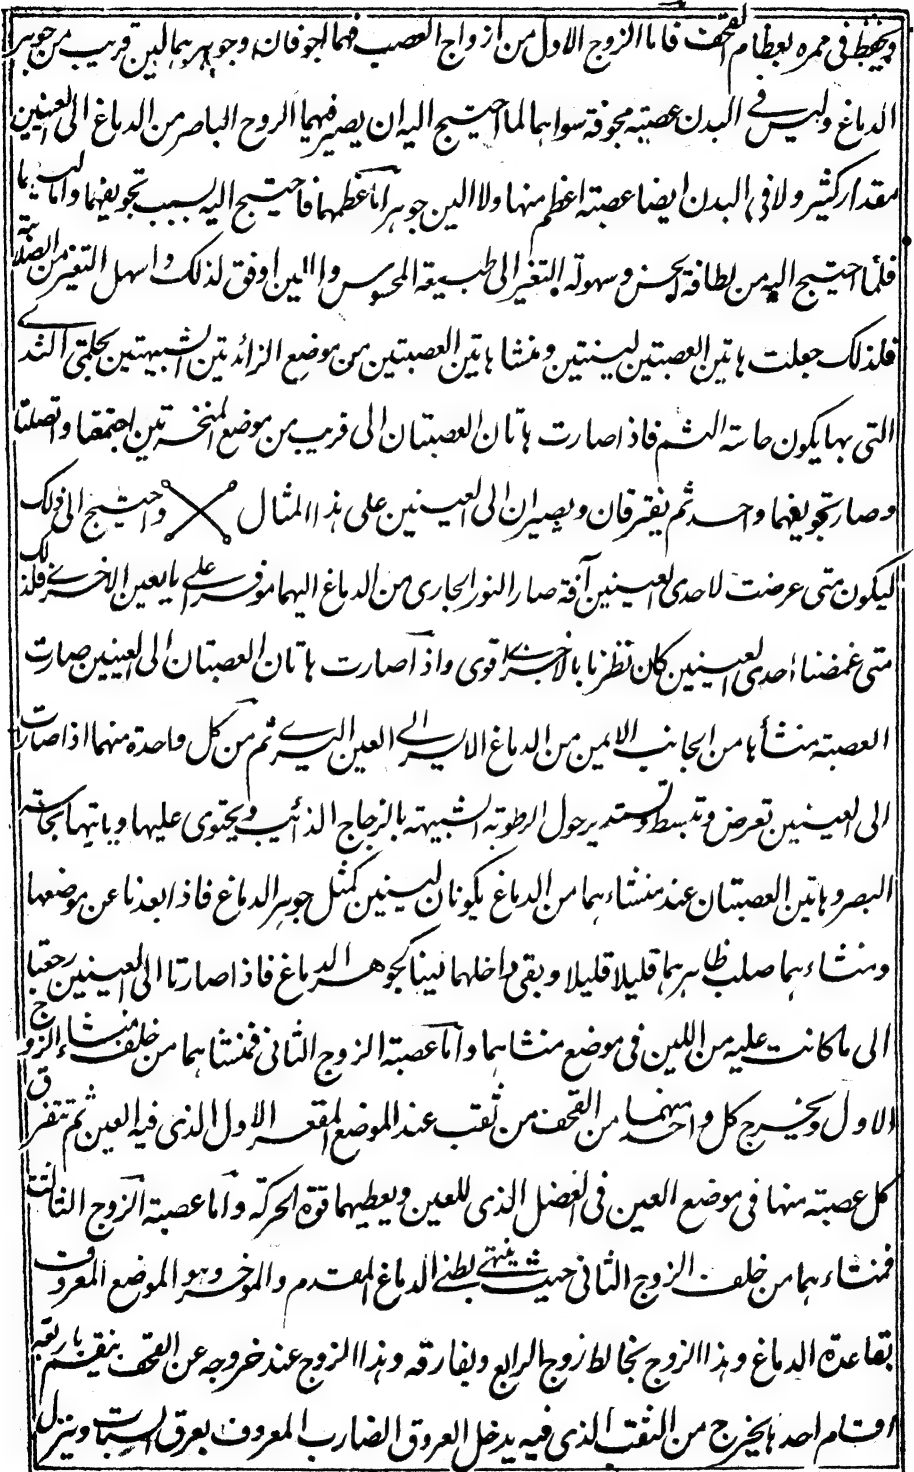 ويخفظ في ممره بعظام القحف فاما الزوج الاول من ازواج العصب فهما اجوفان وجوهرهما لين قريب من جوهر
الدماغ وليس في البدن عصبة مجوفة سواهما لما احتيج اليه ان يصير فيهما الروح الباصر من الدماغ الى العينين
مقدار كثير ولا في البدن ايضا عصبة اعظم منها ولا الين جوهرا اما عظمها فاحتيج اليه بسبب تجويفهما واما لينهما
فلما احتيج اليه من لطافة الحس وسهولة التغير الى طبيعة المحسوس والين اوفق لذلك واسهل التغير من الصلابة
فلذلك جعلت هاتين العصبتين لينتين ومنشا هاتين العصبتين من موضع الزائدتين الشبيهتين بحلمتي الثدي
التي بها يكون حاسة الشم فاذا صارت هاتان العصبتان الى قريب من موضع المنخرتين اجتمعتا واتصلتا
وصار تجويفهما واحد ثم يفترقان ويصيران الى العينين على هذا المثال واحتيج الى ذلك
ليكون متى عرضت لاحدى العينين آفة صار النور الجاري من الدماغ اليهما موفرا على العين الاخرى فلذلك
متى غمضنا احدى العينين كان نظرنا بالاخرى اقوى واذا صارت هاتان العصبتان الى العينين صارت
العصبة منشأها من الجانب الايمن من الدماغ الايسر الى العين اليسرى ثم من كل واحدة منهما اذا صارت
الى العينين تعرض وتبسط وتستدير حول الرطوبة الشبيهة بالزجاج الذائب ويحتوى عليها وياتيها بحاسة
البصر وهاتين العصبتان عند منشاءهما من الدماغ يكونان لينين كمثل جوهر الدماغ فاذا ابعدنا عن موضعها
ومنشاءهما صلب ظاهرهما قليلا قليلا وبقى داخلهما لينا كجوهر الدماغ فاذا صارتا الى العينين رجعتا
الى ما كانت عليه من اللين في موضع منشاهما واما عصبة الزوج الثاني فمنشاهما من خلف منشاء الزوج
الاول ويخرج كل واحد منهما من القحف من ثقب عند الموضع المقعر الاول الذي فيه العين ثم تتفرق
كل عصبة منها في موضع العين في العضل الذي للعين ويعطيهما قوة الحركة واما عصبة الزوج الثالث
فمنشاءهما من خلف الزوج الثاني حيث ينتهى بطنى الدماغ المقدم والموخر وهو الموضع المعروف
بقاعدة الدماغ وهذا الزوج يخالط زوج الرابع ويفارقه وهذا الزوج عند خروجه عن القحف ينقسم باربعة
اقسام احدها يخرج من الثقب الذي فيه يدخل العروق الضارب المعروف بعرق السبات وينزل